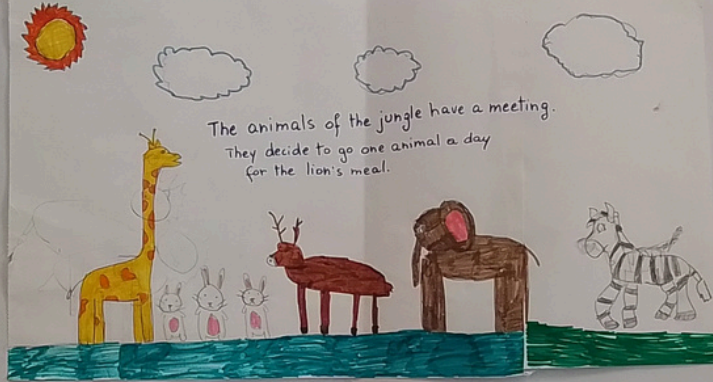 The animals of the jungle have a meeting.
They decide to go one animal a day
for the lion's meal.